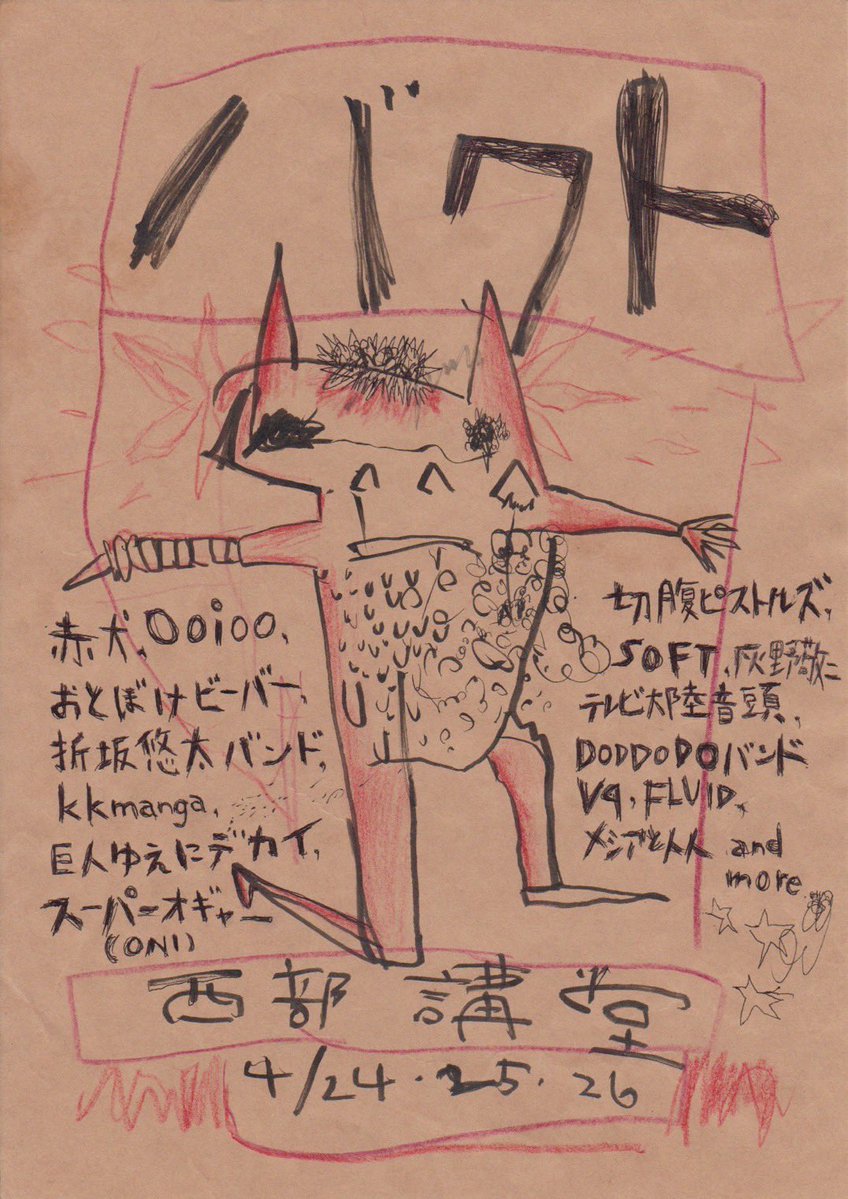 バクト
赤犬, OOiOO,
おとぼけビーバー,
折坂悠太バンド,
kkmanga,
巨人ゆえにデカイ,
スーパーオギャー
(ONI)
切腹ピストルズ,
SOFT, 灰野敬二
テレビ大陸音頭,
DODDODOバンド
Vq, FLUID,
メシアと人人 and
more
西部講堂
4/24・25・26